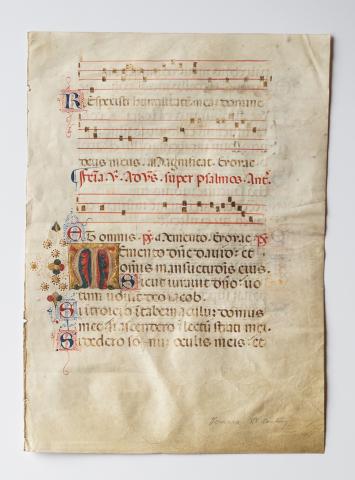 Respexisti humilitatem meam domine
deus meus. Magnificat. Evovae
super psalmos. Ant.
Et omnis. ps. Memento. Evovae. ps
Memento dne david: et
omnis mansuetudinis eius.
Sicut iuravit dno: vo
tum vovit deo iacob.
Si introiero in tabernaculum domus
mee: si ascendero in lectum strati mei.
Si dedero somnum oculis meis: et